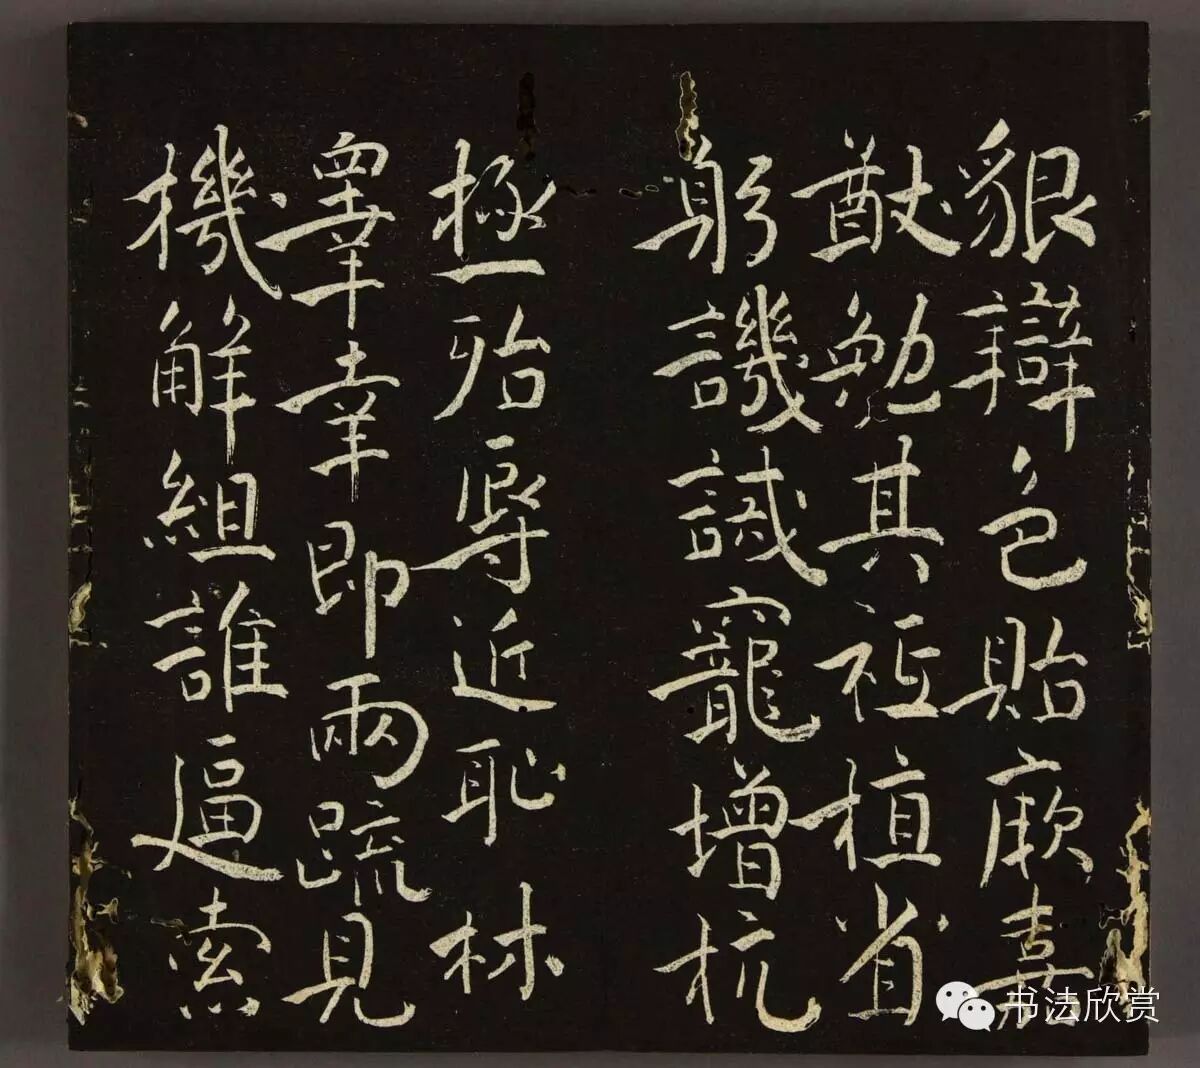 貇辯色貽厥嘉
猷勉其祗植省
躬譏誡寵增抗
極殆辱近恥林
睾幸即兩疏見
機解組誰逼索
书法欣赏